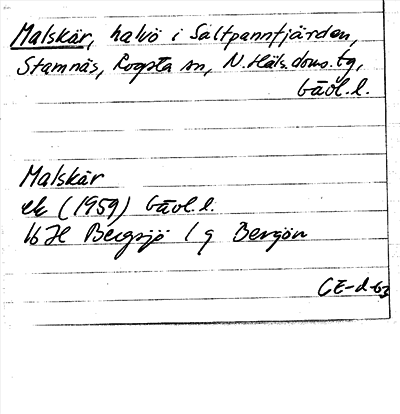 Malskär, halvö i Saltpannfjärden,
Stamnäs, Rogsta sn, N. Häls. doms. tg,
Gävl. l.
Malskär
ek (1959) Gävl. l.
16 H Bergsjö 1 g Bergön
CE-d-63